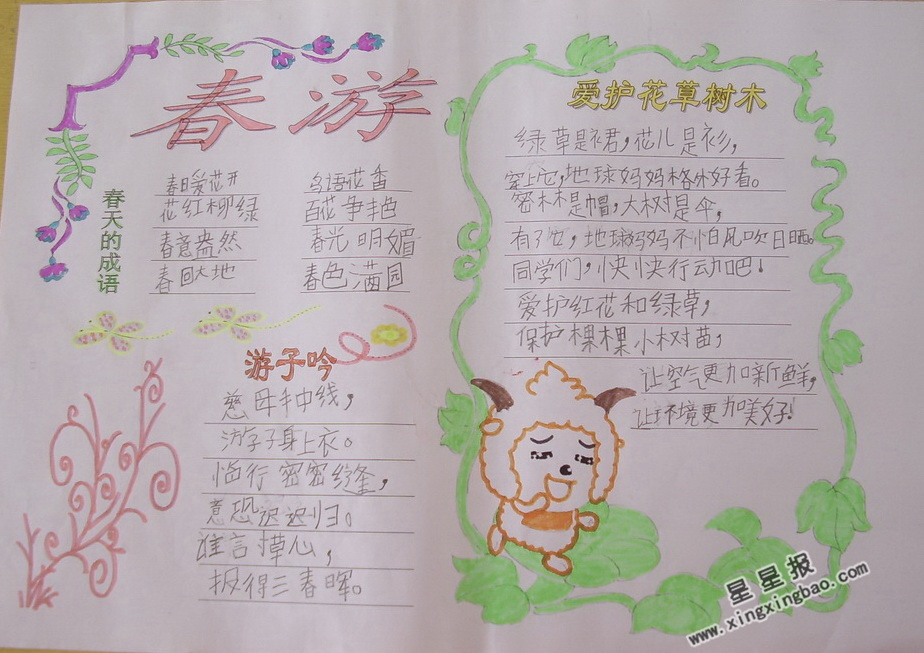 春游
春天的成语
春日爱花开
鸟语花香
花红柳绿
百花争丰色
春意盎然
春光明媚
春回大地
春色满园
游子吟
慈母手中线，
游子身上衣。
临行密密缝，
意恐迟迟归。
谁言草心，
报得三春晖。
爱护花草树木
绿草是裙，花儿是衫，
穿上它，地球妈妈格外好看。
密林是帽，大树是伞，
有了它，地球妈妈不怕风吹日晒。
同学们，快快行动吧！
爱护红花和绿草，
保护棵棵小树苗，
让空气更加新鲜，
让环境更加美好！
星星报
www.xingxingbao.com